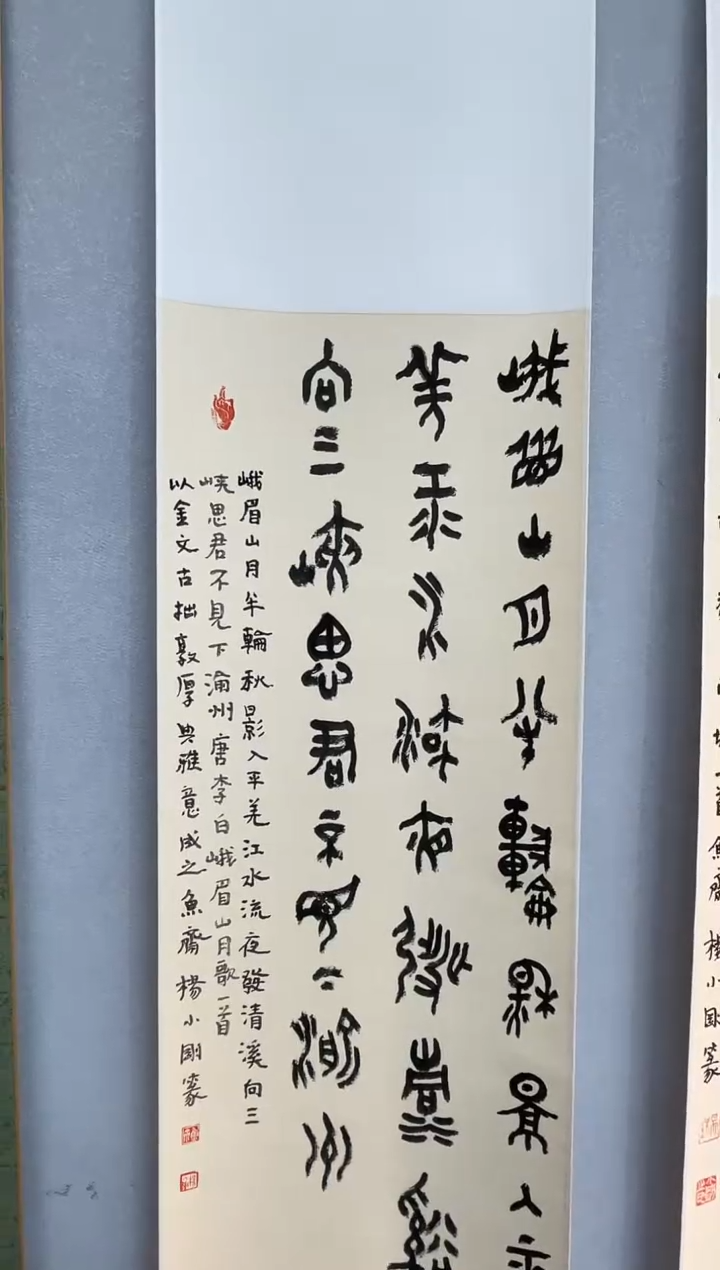 峨嵋山月半輪秋景入平
羌江水流夜發清谿
向三峽思君不見下渝州
峨眉山月半輪秋影入平羌江水流夜發清溪向三
峽思君不見下渝州唐李白峨眉山月歌一首
以金文古拙敦厚典雅意成之魚齋楊小剛篆